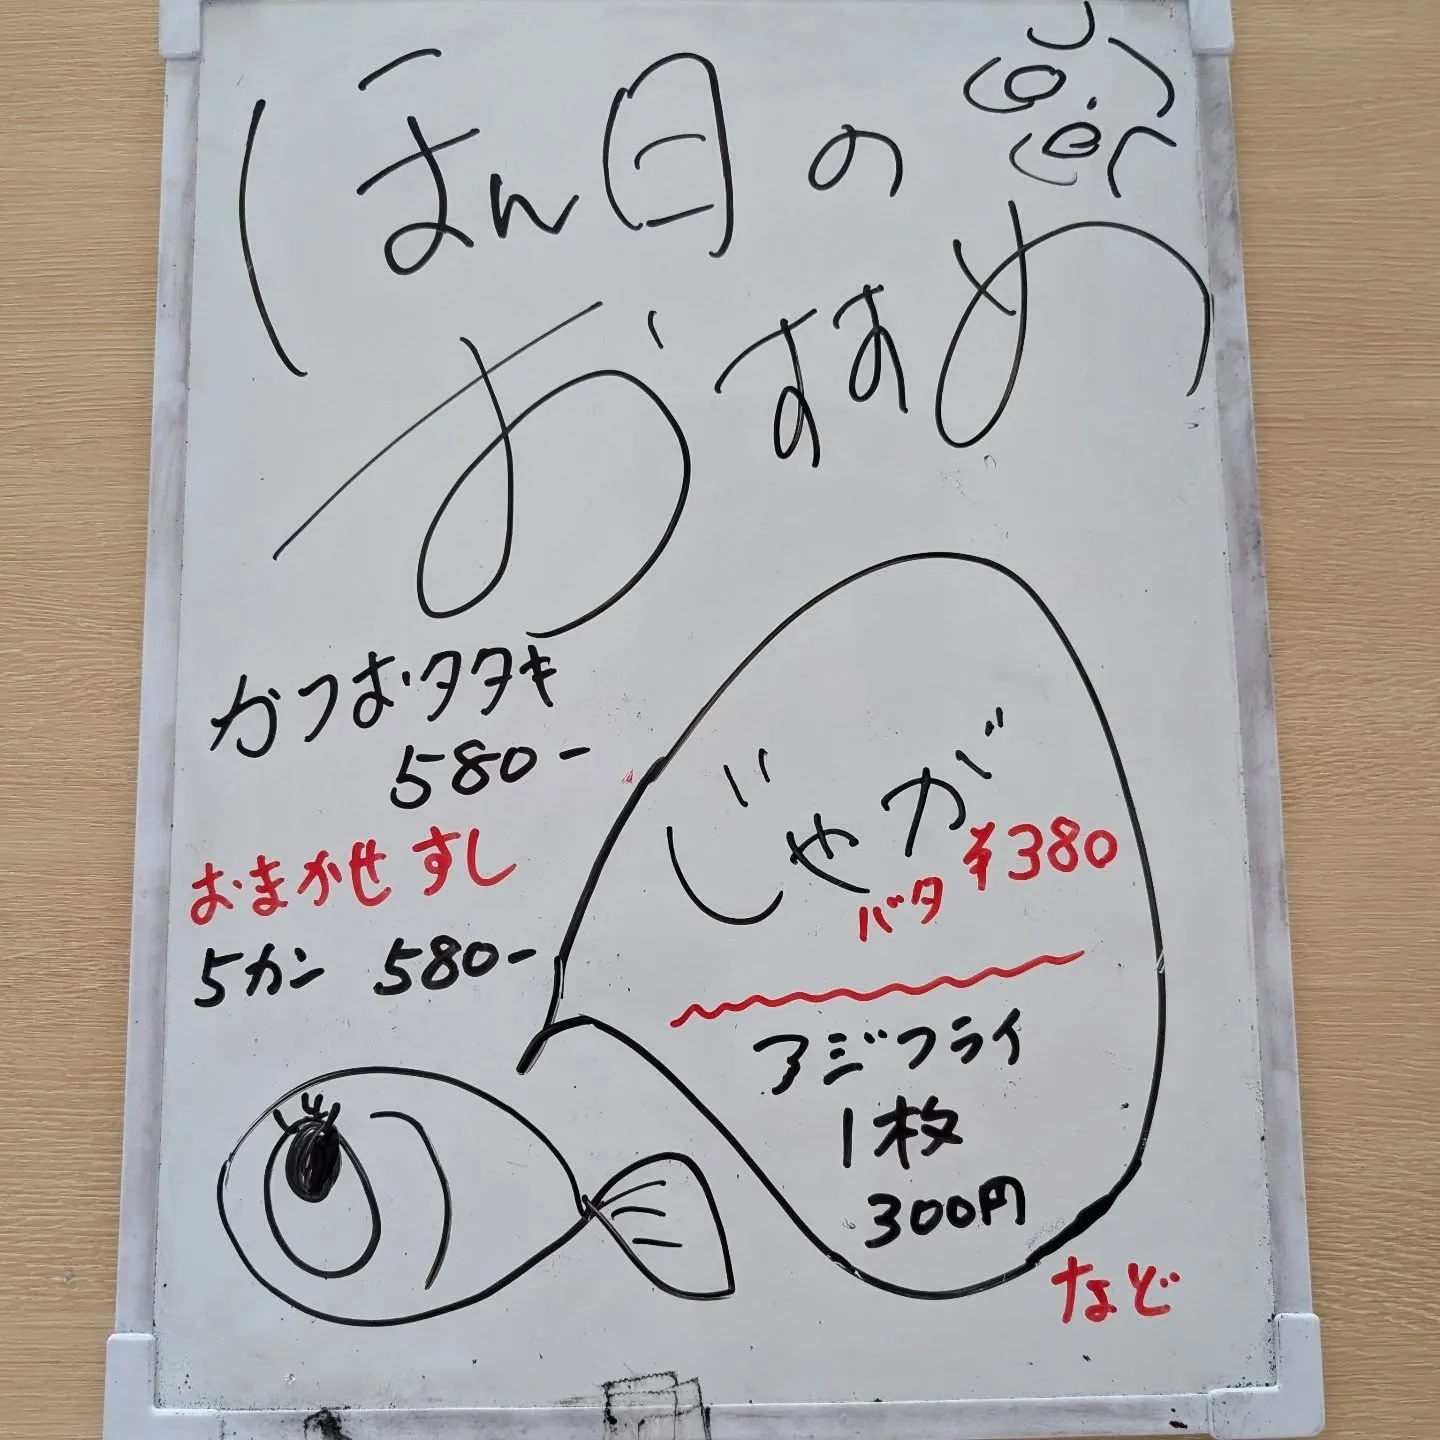 ほん日の
おすすめ
かつおタタキ
580-
おまかせすし
5カン 580-
じゃが
バタ ¥380
アジフライ
1枚
300円
など